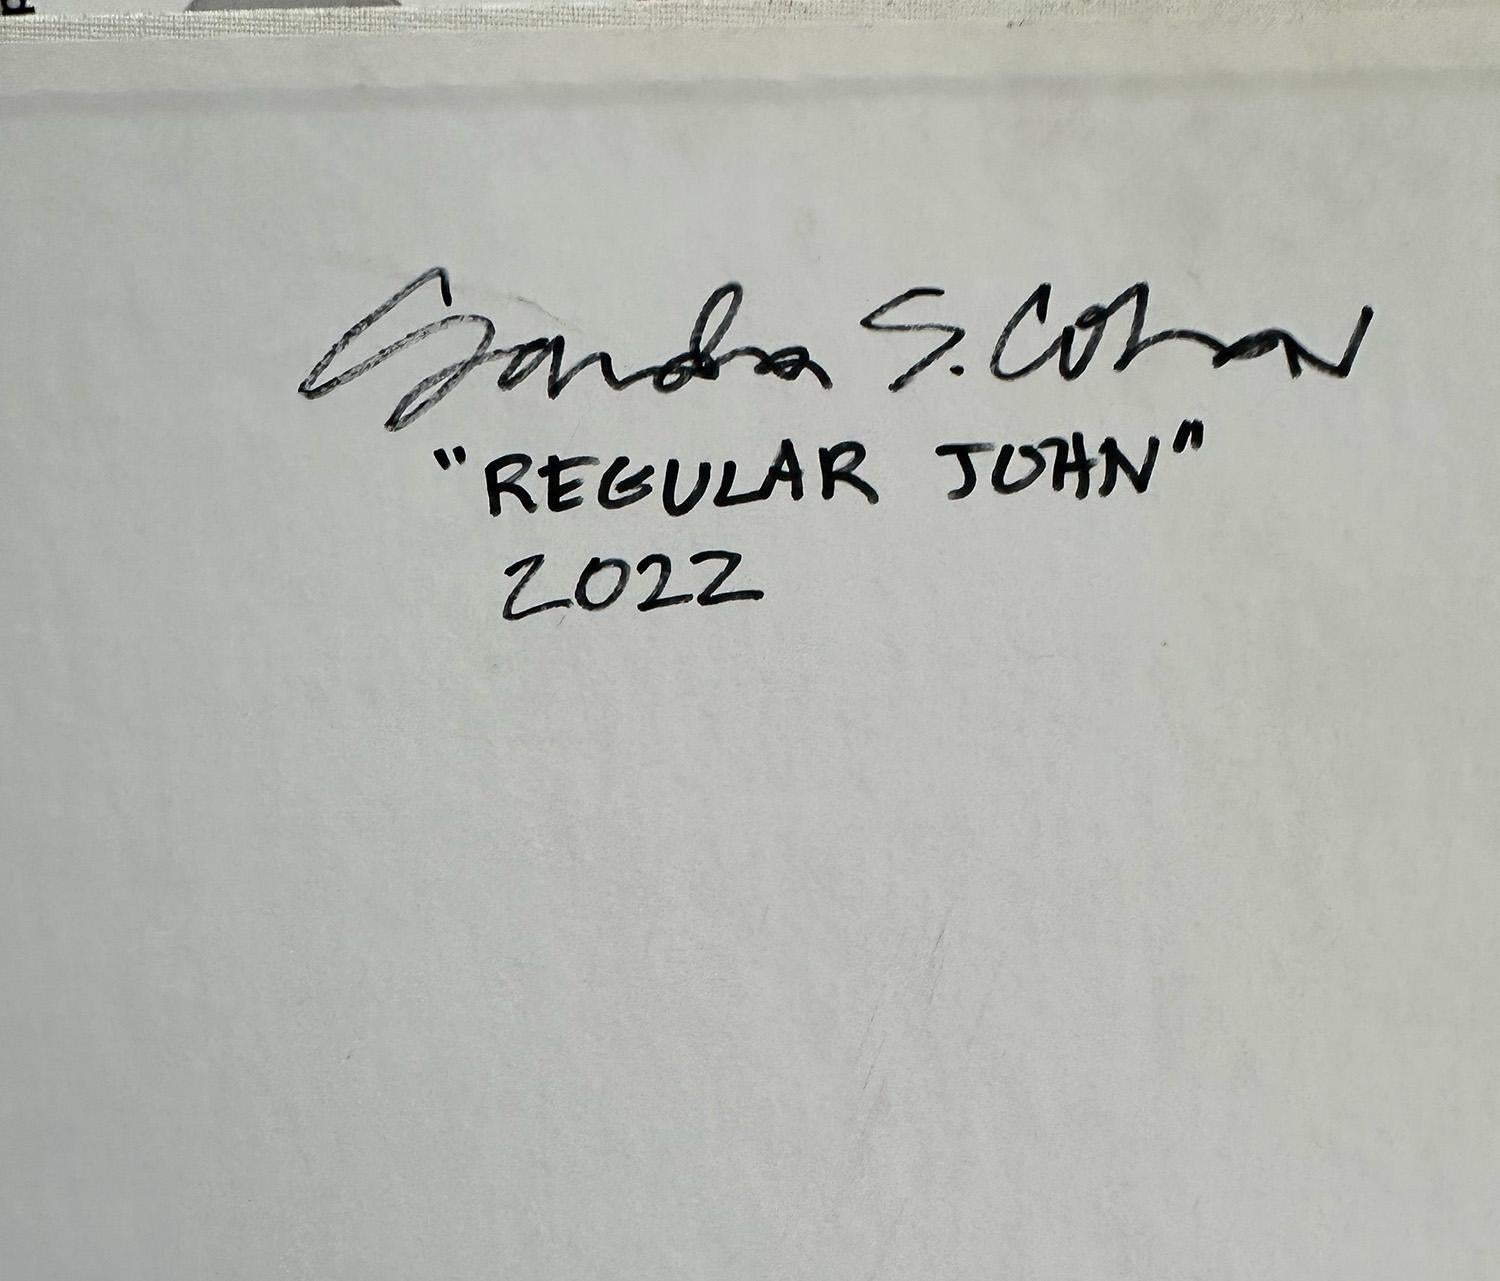 Sandra S. Cohen
"REGULAR JOHN"
2022